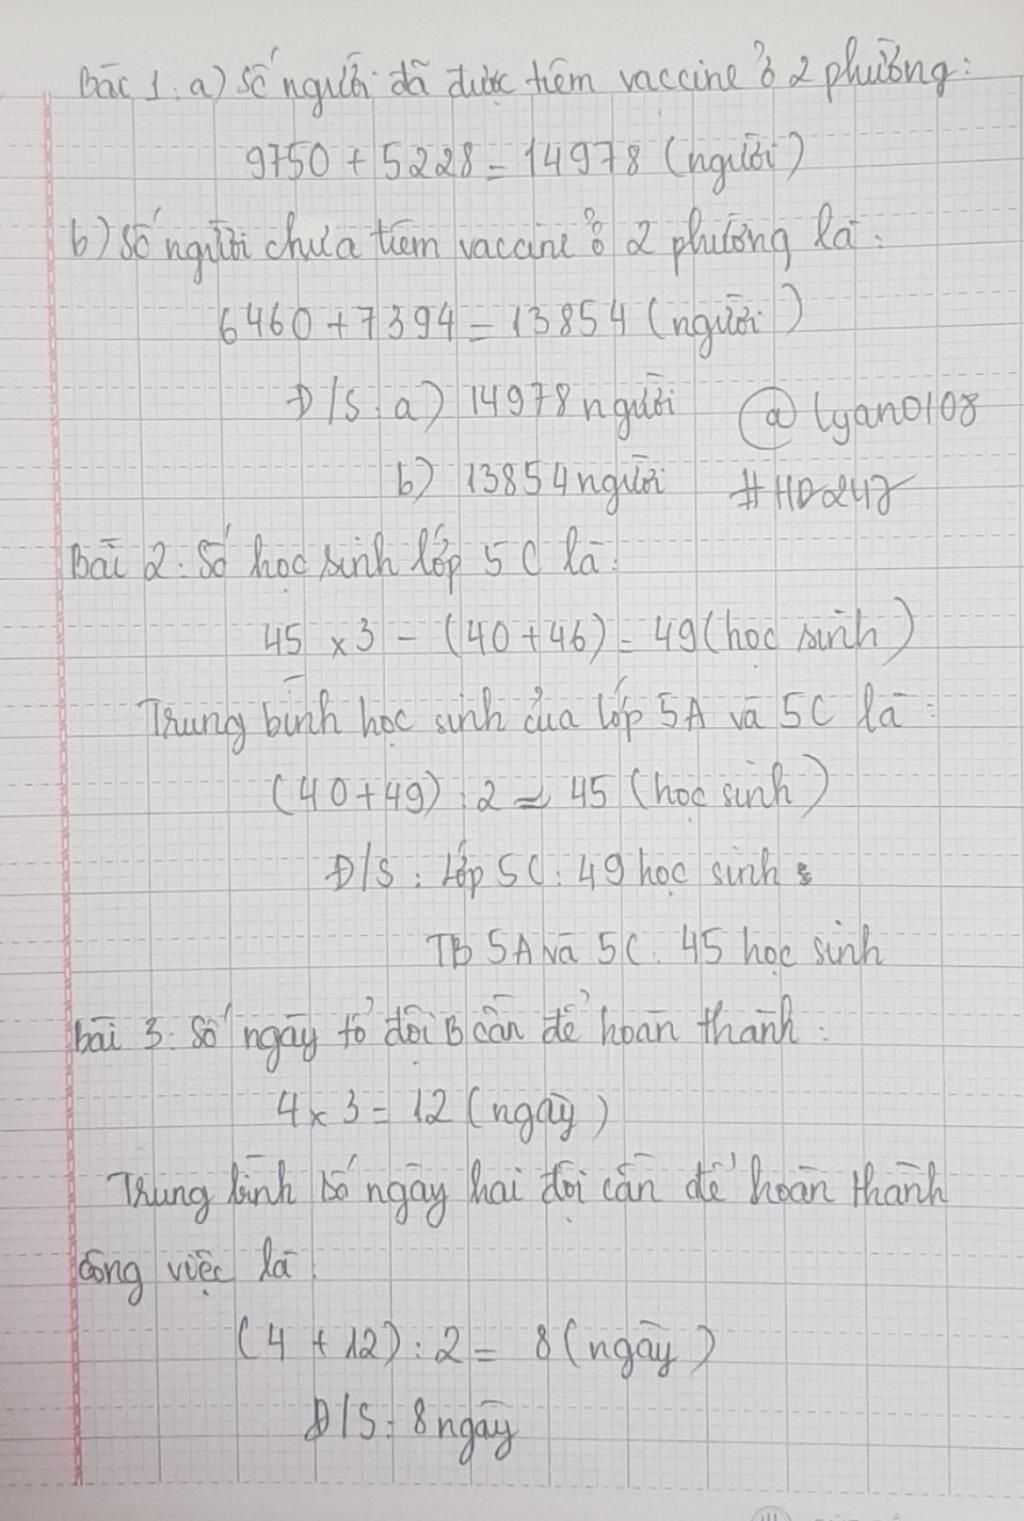 Bài 1: a) Số người đã được tiêm vaccine ở 2 phường:
9750 + 5228 = 14978 (người)
b) Số người chưa tiêm vaccine ở 2 phường là:
6460 + 7394 = 13854 (người)
Đ/S: a) 14978 người
@lyan0108
b) 13854 người
#HD247
Bài 2: Số học sinh lớp 5C là:
45 x 3 - (40 + 46) = 49 (học sinh)
Trung bình học sinh của lớp 5A và 5C là:
(40 + 49) : 2 = 45 (học sinh)
Đ/S: Lớp 5C: 49 học sinh
TB 5A và 5C: 45 học sinh
Bài 3: Số ngày tổ đội B cần để hoàn thành:
4 x 3 = 12 (ngày)
Trung bình số ngày hai đội cần để hoàn thành
công việc là:
(4 + 12) : 2 = 8 (ngày)
Đ/S: 8 ngày